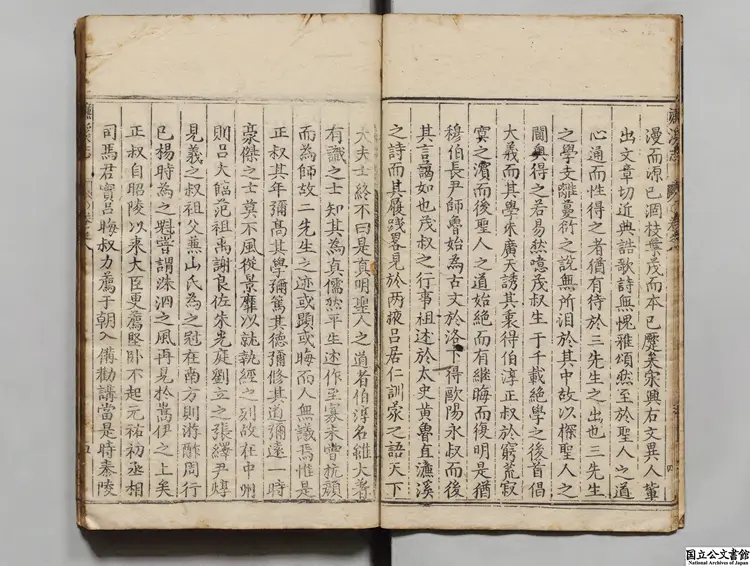 漫而源已涸枝葉茂而本已蹷矣宋興右文異人輩
出文章切近典誥歌詩無愧雅頌然至於聖人之道
心通而性得之者猶有待於三先生之出也三先生
之學支離蔓衍之說無所汨於其中故以探聖人之
閫奧得之若易然噫茂叔生于千載絶學之後首倡
大義而其學未廣天誘其衷得伯淳正叔於窮荒寂
寞之濵而後聖人之道始絶而有繼晦而復明是猶
穆伯長尹師魯始為古文於洛下得歐陽永叔而後
其言謁如也茂叔之行事祖述於太史黃魯直濂溪
之詩而其履踐畧見於两掖呂居仁訓蒙之語天下
大夫士終不曰是真明聖人之道者伯淳名雖大著
有識之士知其為真儒然平生述作至寡未甞抗顔
而為師故二先生之迹或顯或晦而人無議焉惟是
正叔其年彌高其學彌篤其德彌修其道彌遠一時
豪傑之士莫不風從景靡以就執經之列故在中州
則呂大臨范祖禹謝良佐朱光庭劉立之張繹尹焞
見羲之叔祖父兼山氏為之冠在南方則游酢周行
已楊時為之魁甞謂洙泗之風再見於嵩伊之上矣
正叔自昭陵以來大臣更薦堅卧不起元祐初丞相
司馬君實呂晦叔力薦于朝入傋勸講當是時泰陵
国立公文書館
National Archives of Japan